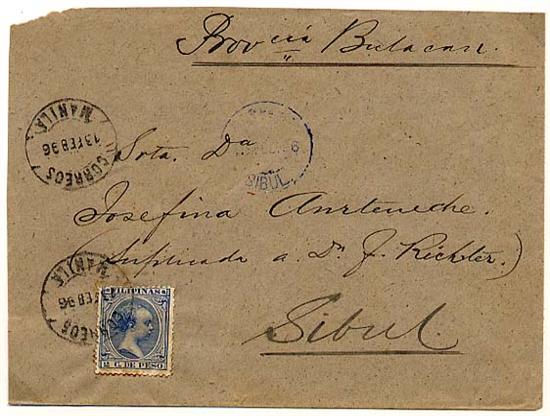 Prov cia Bulacan.
CORREOS
MANILA
13 FEB 96
SIBUL.
Srta. Da
Josefina
Suplicada a Dn J. Richter.)
Sibul.
CORREOS
MANILA
13 FEB 96
FILIPINAS
C. DE PESO